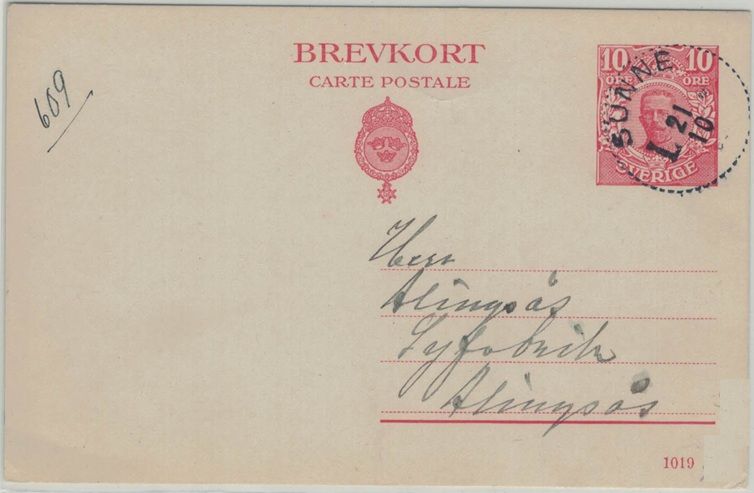 BREVKORT
CARTE POSTALE
10 10
ÖRE ÖRE
SVERIGE
SUNNE
21
10
L
609
Herr
Alingsås
Syfabrik
Alingsås
1019